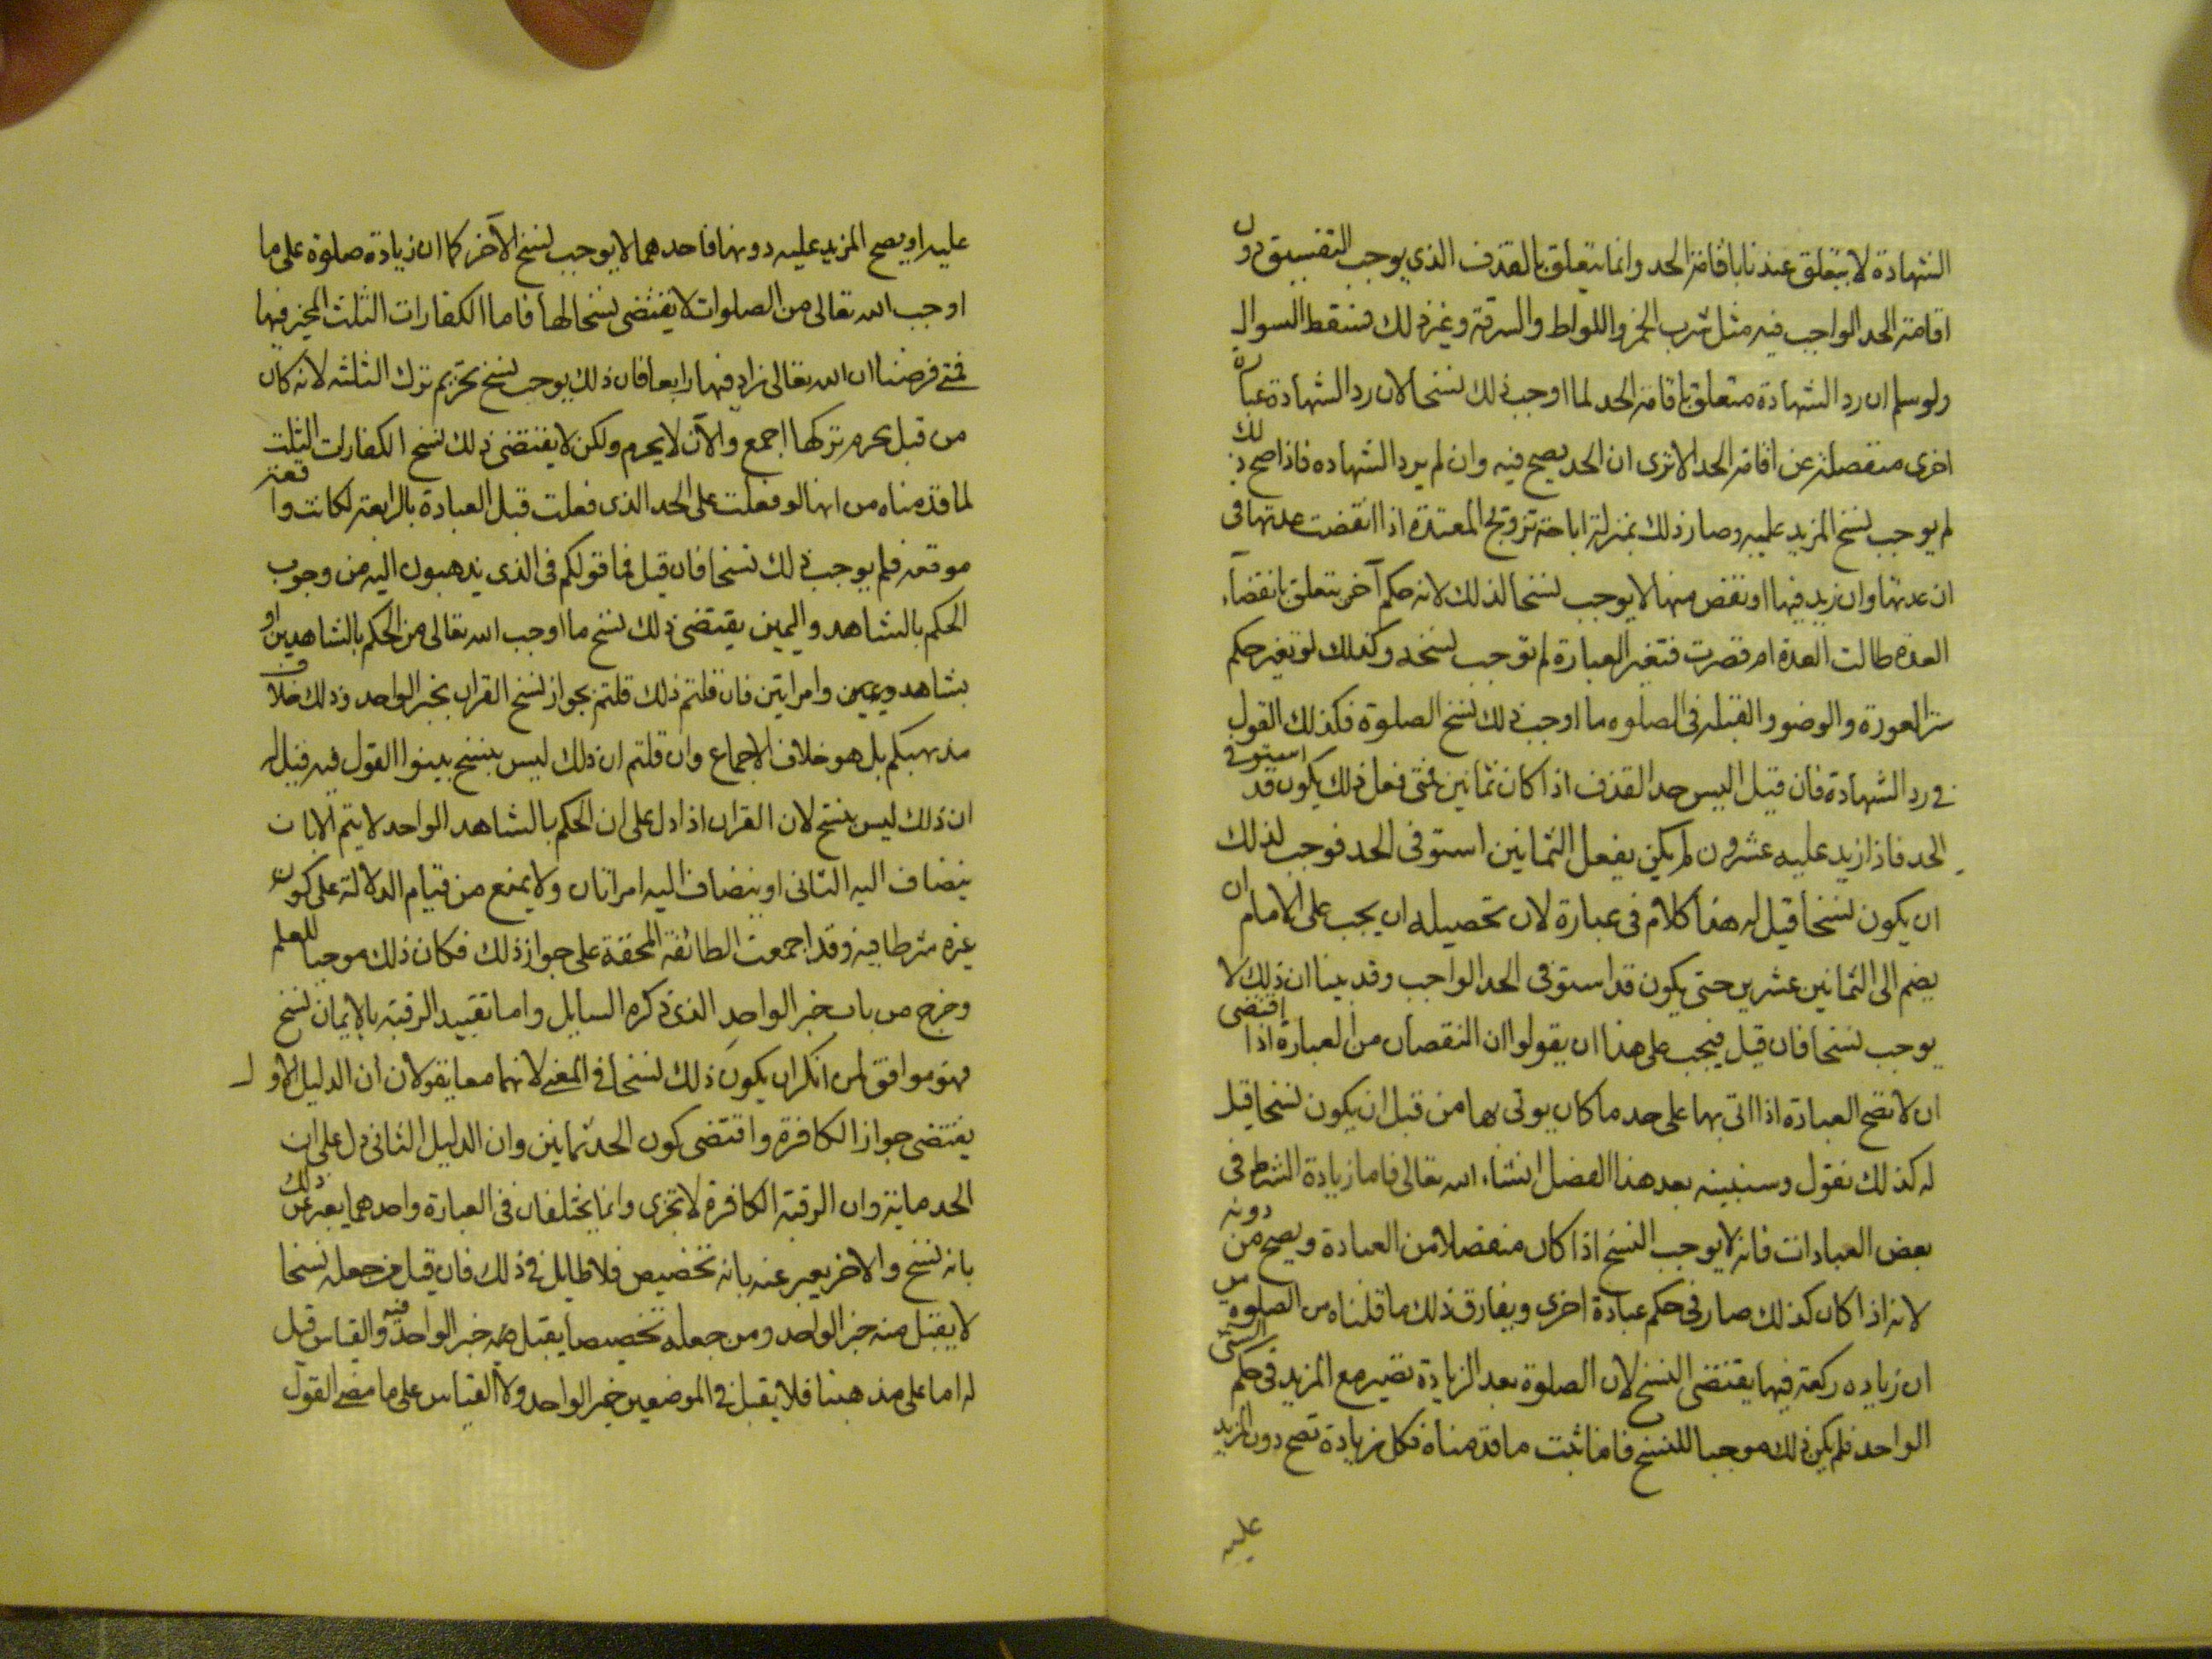 الشهادة لا يتعلق عندنا باقامة الحد وانما يتعلق بالقذف الذي يوجب التفسيق دون
اقامة الحد الواجب فيه مثل شرب الخمر واللواط والسرقة وغير ذلك فسقط السوال
ولو سلم ان رد الشهادة متعلق باقامة الحد لما اوجب ذلك نسخا لان رد الشهادة عبادة
اخرى منفصلة عن اقامة الحد الا ترى ان الحد يصح فيه وان لم يرد الشهادة فاذا صح ذلك
لم يوجب نسخ المزيد عليه وصار ذلك بمنزلة اباحة تزويج المعتدة اذا انقضت عدتها في
ان عدتها وان زيد فيها او نقص منها لا يوجب نسخا لذلك لانه حكم آخر يتعلق بانقضآء
العدة طالت العدة ام قصرت فتغير العبارة لم توجب نسخه وكذلك لو تغير حكم
ستر العورة والوضو والقبلة في الصلوه ما اوجب ذلك نسخ الصلوة فكذلك القول
في رد الشهادة فان قيل اليس حد القذف اذا كان ثمانين فمتى فعل ذلك يكون قد استوفى
الحد فاذا زيد عليه عشرون لم يكن يفعل الثمانين استوفى الحد فوجب لذلك
ان يكون نسخا قيل له هذا كلام في عبارة لان تحصيله ان يجب على الامام ان
يضم الى الثمانين عشرين حتى يكون قد استوفى الحد الواجب وقد بينا ان ذلك لا
يوجب نسخا فان قيل فيجب على هذا ان يقولوا ان النقصان من العبارة اذا اقتضى
ان لا تصح العبادة اذا اتى بها على حد ما كان يوتى بها من قبل ان يكون نسخا قيل
له كذلك نقول وسنبينه بعد هذا الفصل انشاء الله تعالى فاما زيادة الشرط في
بعض العبادات فانه لا يوجب النسخ اذا كان منفصلا من العبادة ويصح من دونه
لانه اذا كان كذلك صار في حكم عبادة اخرى ويفارق ذلك ما قلناه من الصلوة من
ان زياده ركعة فيها يقتضى النسخ لان الصلوة بعد الزيادة تصير مع المزيد في حكم الشى
الواحد فلم يكن ذلك موجبا للنسخ فاما ثبت ما قدمناه فكل زيادة تصح دون المزيد
عليه
عليه او يصح المزيد عليه دونها فاحدهما لا يوجب نسخ الآخر كما ان زيادة صلوة على ما
اوجب الله تعالى من الصلوات لا يقتضى نسخا لها فاما الكفارات الثلث المخير فيها
فمتى فرضنا ان الله تعالى زاد فيها رابعا فان ذلك يوجب نسخ تحريم ترك الثلثه لانه كان
من قبل يحرم تركها اجمع والآن لا يحرم ولكن لا يقتضى ذلك نسخ الكفارات الثلث
لما قدمناه من انها لو فعلت على الحد الذى فعلت قبل العبادة بالرابعة لكانت واقعة
موقعه فلم يوجب ذلك نسخا فان قيل فما قولكم في الذى يذهبون اليه من وجوب
الحكم بالشاهد واليمين يقتضى ذلك نسخ ما اوجب الله تعالى من الحكم بالشاهدين او
بشاهد ويمين وامراتين فان قلتم ذلك قلتم بجواز نسخ القران بخبر الواحد وذلك خلاف
مذهبكم بل هو خلاف الاجماع وان قلتم ان ذلك ليس بنسخ بينوا القول فيه قيل له
ان ذلك ليس بنسخ لان القران اذا دل على ان الحكم بالشاهد الواحد لا يتم الا بان
ينضاف اليه الثانى او ينضاف اليه امراتان ولا يمنع من قيام الدلالة على كون
غيره شرطا فيه وقد اجمعت الطائفة المحقة على جواز ذلك فكان ذلك موجبا للعلم
وخرج من باب خبر الواحد الذى ذكره السايل واما تقييد الرقبة بالايمان نسخ
فهو موافق لمن انكر ان يكون ذلك نسخا في المعنى لانهما معا يقولان ان الدليل الاول
يقتضى جواز الكافرة واقتضى كون الحد ثمانين وان الدليل الثانى دل على ان
الحد ماية وان الرقبة الكافرة لا تجزى وانما يختلفان في العبارة واحدهما يعبر عن ذلك
بانه نسخ والاخر يعبر عنه بانه تخصيص فلا طايل في ذلك فان قيل من جعله نسخا
لا يقبل منه خبر الواحد ومن جعله تخصيصا يقبل فيه خبر الواحد والقياس قيل
له اما على مذهبنا فلا يقبل في الموضعين خبر الواحد ولا القياس على ما مضى القول